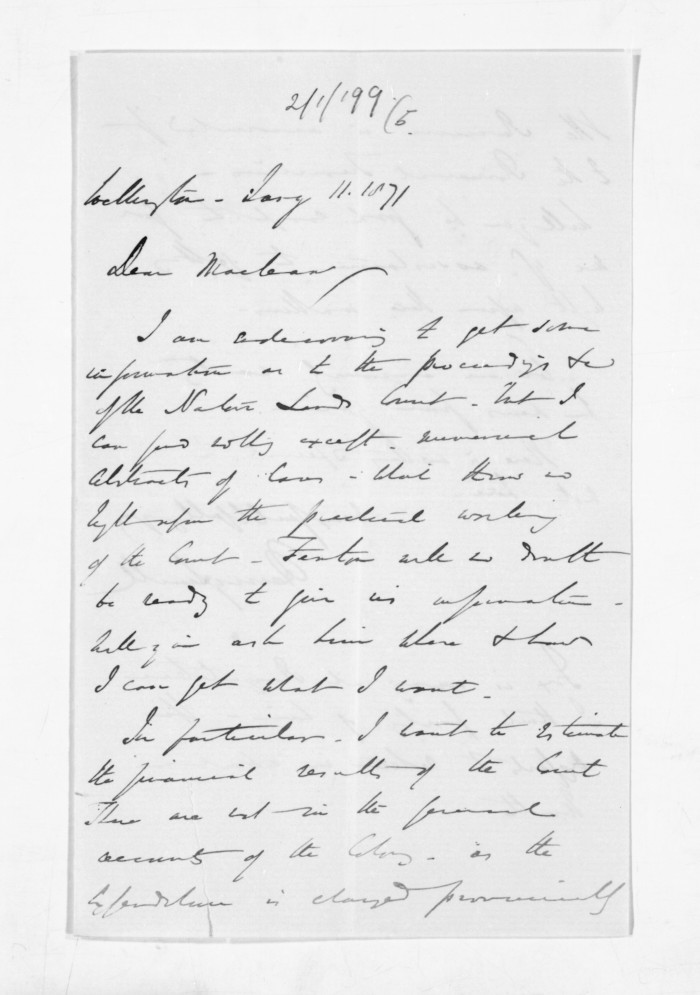 2/1/199/5.
Wellington - Jany 11. 1871
Dear Maclean
I am endeavouring to get some
information as to the proceedings &c
of the Native Lands Court - but I
can find nothing except - numerical
Abstracts of Cases - that throw no
light upon the practical working
of the Court - Fenton will no doubt
be ready to give us information -
Will you ask him where & how
I can get what I want -
In particular - I want to estimate
the financial results of the Court
These are not in the general
accounts of the Colony - as the
Expenditure is charged provincially